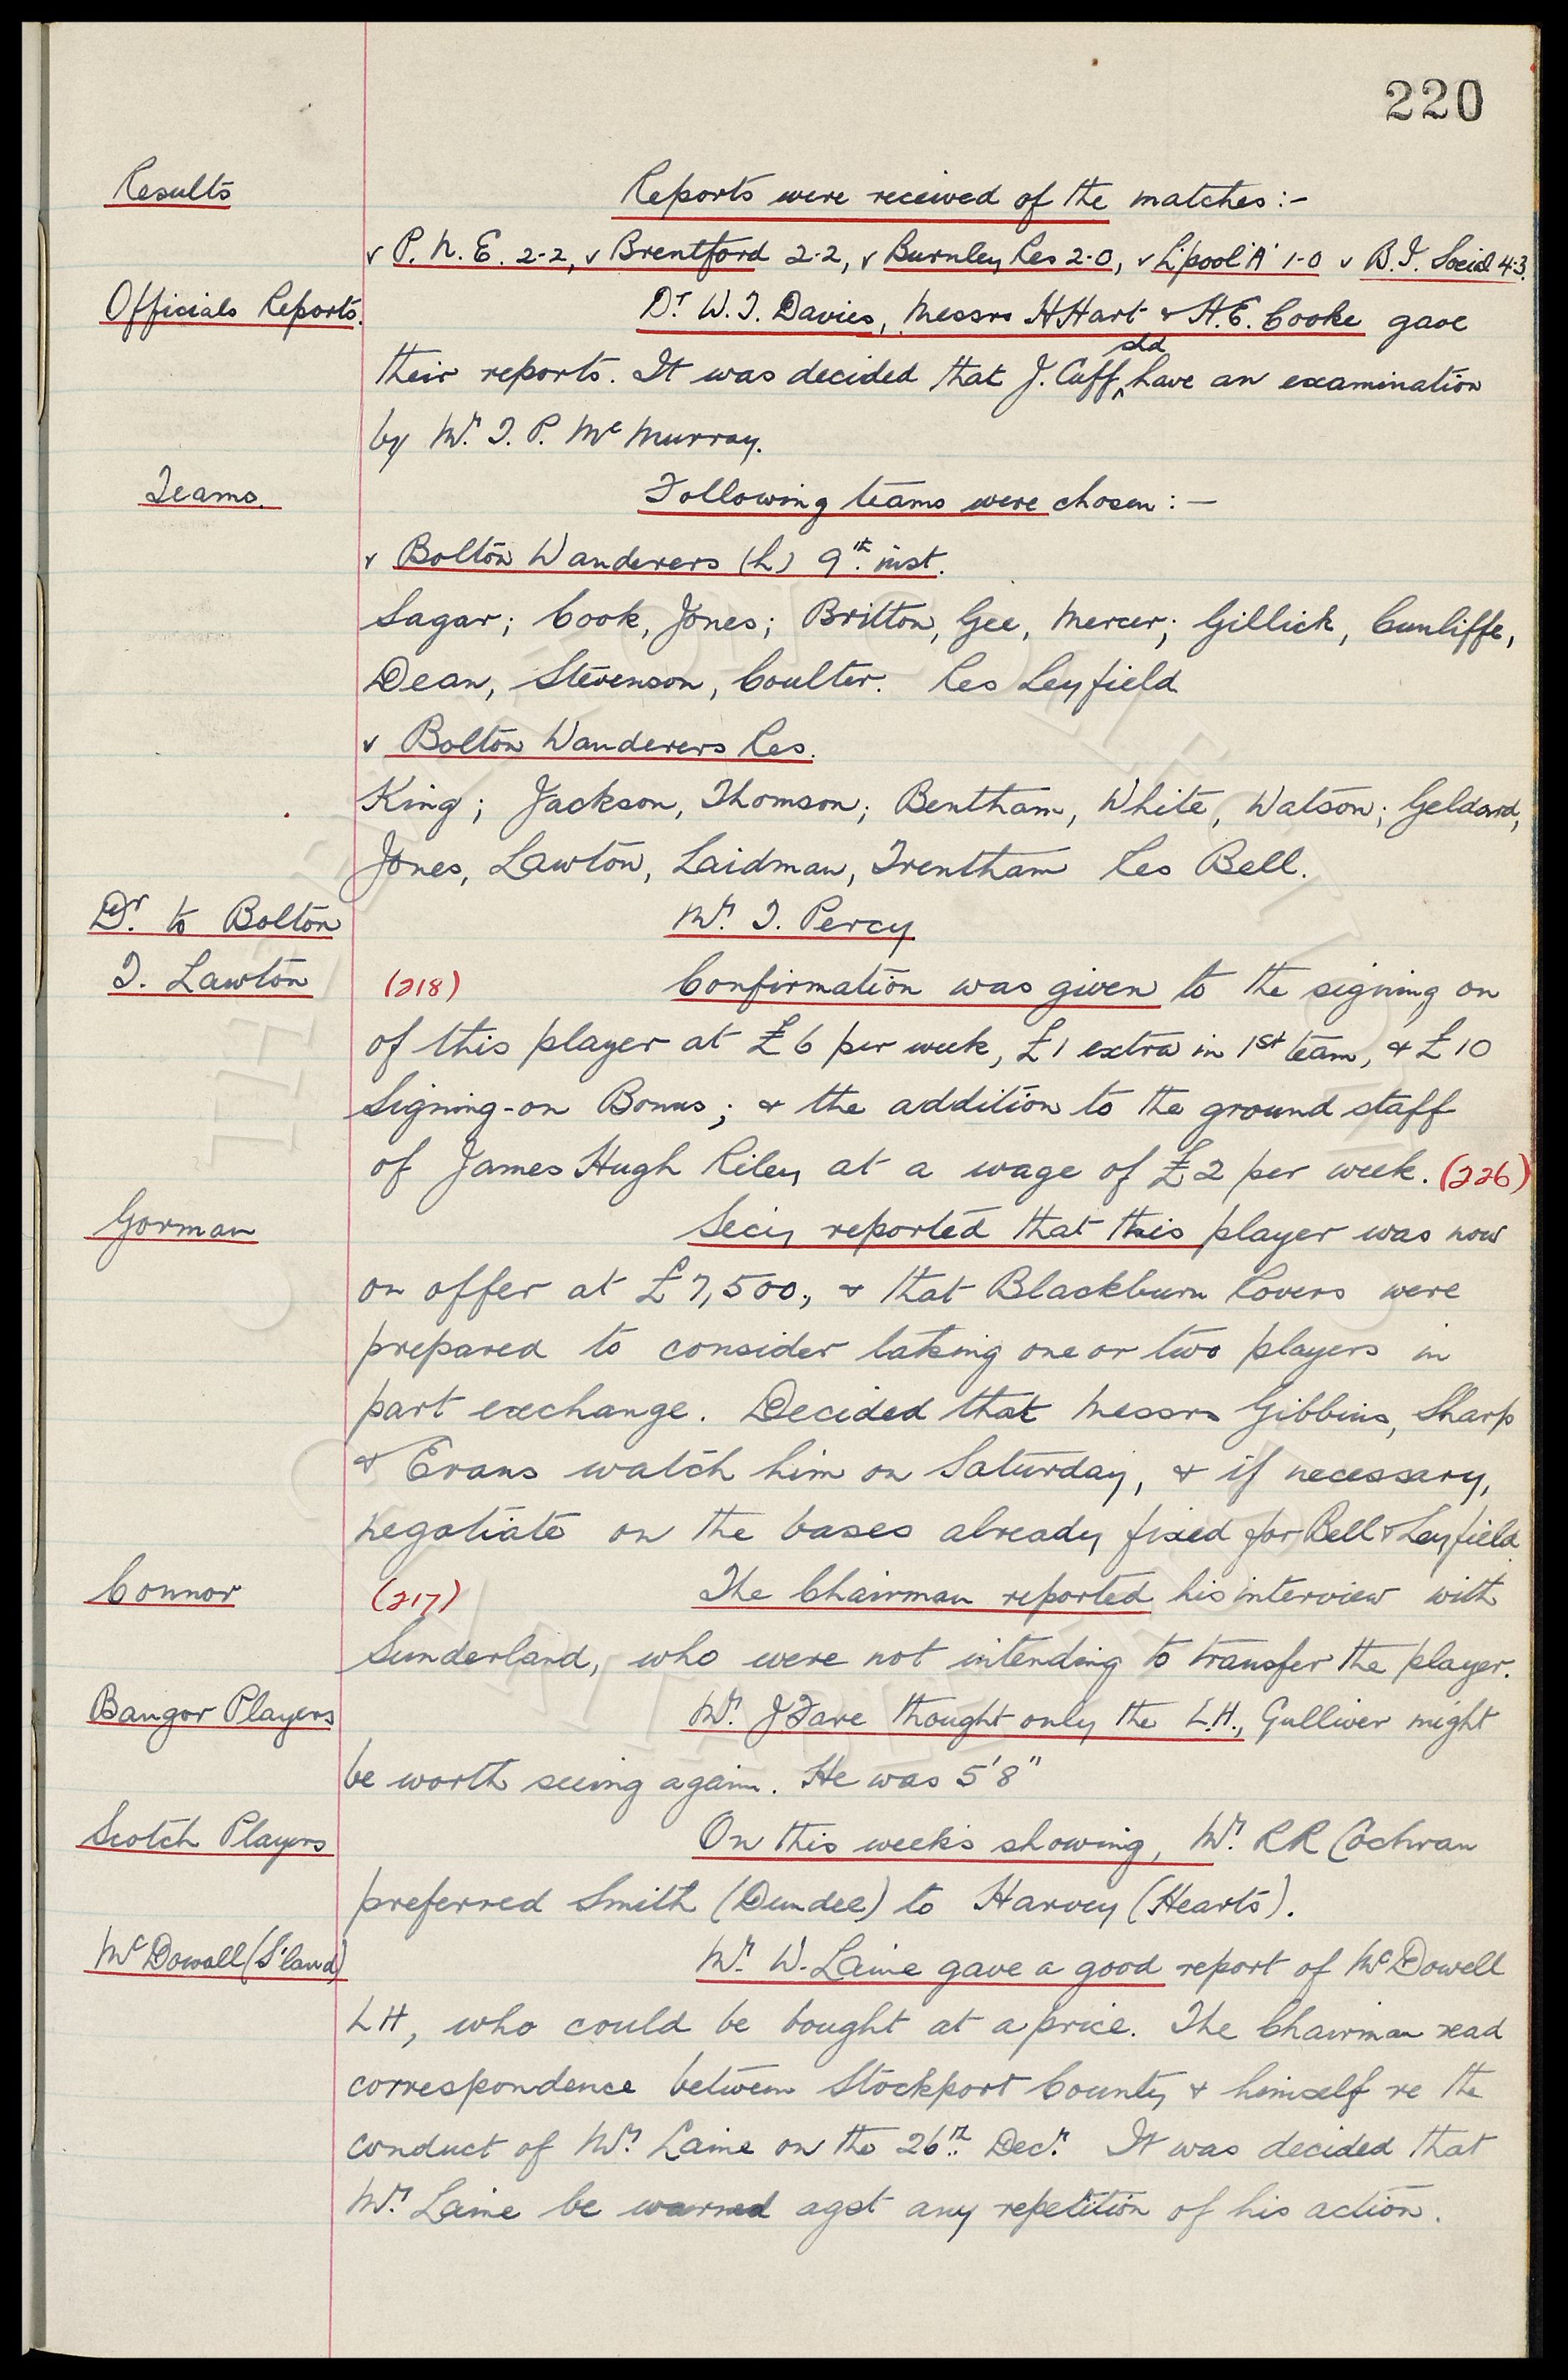 220
Results
Reports were received of the matches:-
v P. N. E. 2-2, v Brentford 2-2, v Burnley Res 2-0, v L'pool 'A' 1-0 v B.I. Social 4-3.
Officials Reports.
Dr. W. J. Davies, Messrs H Hart & H. E. Cooke gave
their reports. It was decided that J. Cuff shd have an examination
by Mr. T. P. Mc Murray.
Teams.
Following teams were chosen:-
v Bolton Wanderers (h) 9th. inst.
Sagar; Cook, Jones; Britton, Gee, Mercer; Gillick, Cunliffe,
Dean, Stevenson, Coulter. Res Leyfield
v Bolton Wanderers Res.
King; Jackson, Thomson; Bentham, White, Watson; Geldard,
Jones, Lawton, Laidman, Trentham Res Bell.
Dr. to Bolton
Mr. T. Percy
T. Lawton
(218) Confirmation was given to the signing on
of this player at £6 per week, £1 extra in 1st team, & £10
Signing-on Bonus; & the addition to the ground staff
of James Hugh Riley at a wage of £2 per week. (226)
Gorman
Secy reported that this player was now
on offer at £7,500, & that Blackburn Rovers were
prepared to consider taking one or two players in
part exchange. Decided that Messrs Gibbins, Sharp
& Evans watch him on Saturday, & if necessary,
negotiate on the bases already fixed for Bell & Leyfield
Connor
(217) The Chairman reported his interview with
Sunderland, who were not intending to transfer the player.
Bangor Players
Mr. J Fare thought only the L.H., Gulliver might
be worth seeing again. He was 5'8"
Scotch Players
On this week's showing, Mr. RR Cochran
preferred Smith (Dundee) to Harvey (Hearts).
Mc Dowall (S'land)
Mr. W. Laine gave a good report of McDowell
LH, who could be bought at a price. The Chairman read
correspondence between Stockport County & himself re the
conduct of Mr. Laine on the 26th. Decr. It was decided that
Mr. Laine be warned agst any repetition of his action.